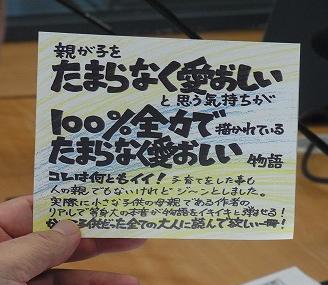 親が子を
たまらなく愛おしい
と思う気持ちが
100%全力で
描かれている
たまらなく愛おしい
物語
コレは何ともイイ！子育てをした事も
人の親でもないけれどジーンとしました。
実際に小さな子供の母親である作者の
リアルで等身大の本音が物語をイキイキと弾ませる！
子供だった全ての大人に読んで欲しい一冊！